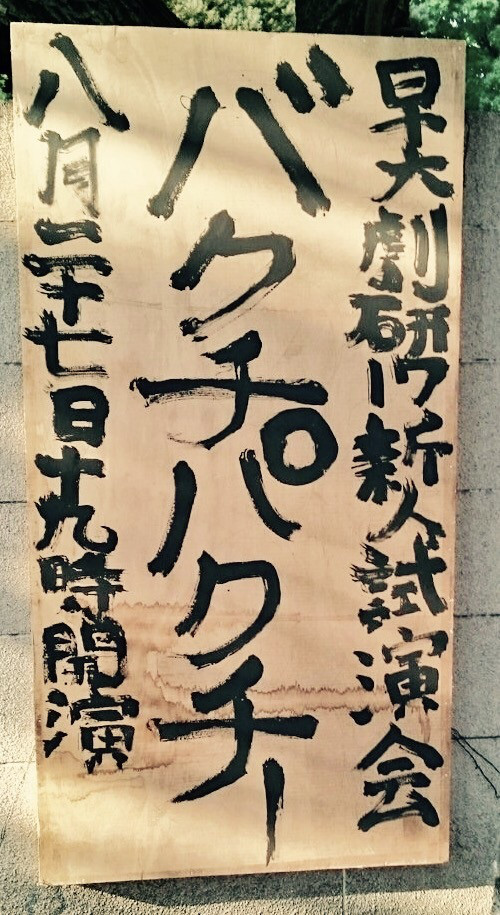 早大劇研17新人試演会
バクチパクチー
八月二十七日十九時開演